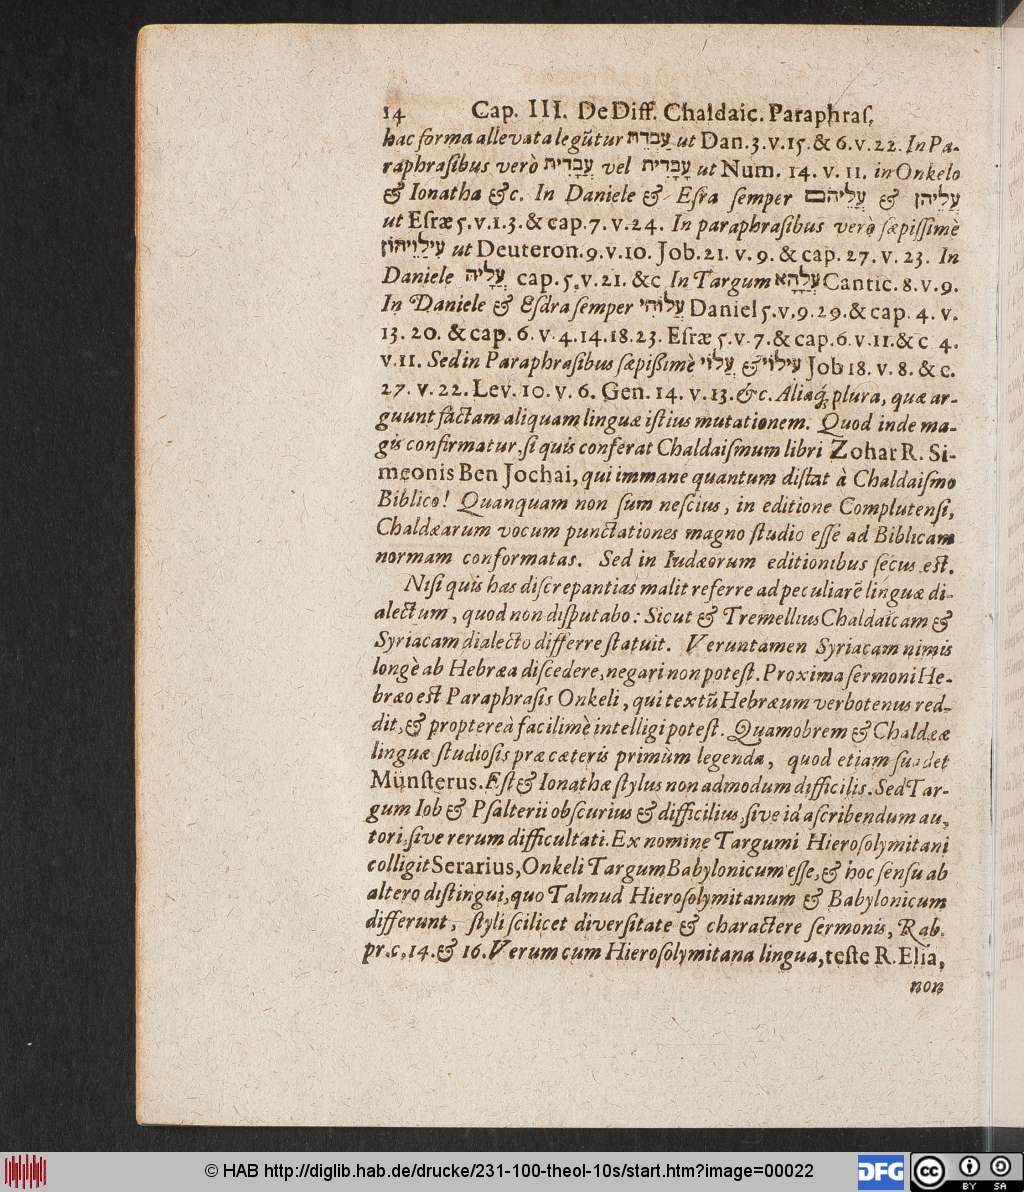 14 Cap. III. De Diff. Chaldaic. Paraphras.
hac forma allevata legũtur עַבְדֵת ut Dan. 3. v. 15. & 6. v. 22. In Pa-
raphrasibus verò עֲבָדִית vel עֲבָדִית ut Num. 14. v. 11. in Onkelo
& Ionatha &c. In Daniele & Esra semper עֲלֵיהֹם & עֲלֵיהֹן
ut Esræ 5. v. 1. 3. & cap. 7. v. 24. In paraphrasibus verò sæpissimè
עִילָוֵיהוֹן ut Deuteron. 9. v. 10. Job. 21. v. 9. & cap. 27. v. 23. In
Daniele עֲלָיהּ cap. 5. v. 21. &c In Targum עֲלָהָא Cantic. 8. v. 9.
In Daniele & Esdra semper עֲלוֹהִי Daniel 5. v. 9. 29. & cap. 4. v.
13. 20. & cap. 6. v. 4. 14. 18. 23. Esræ 5. v. 7. & cap. 6. v. 11. & c 4.
v. 11. Sed in Paraphrasibus sæpissimè עֲלוֹי & עִילוֹי Job 18. v. 8. & c.
27. v. 22. Lev. 10. v. 6. Gen. 14. v. 13. &c. Aliaq́; plura, quæ ar-
guunt factam aliquam linguæ istius mutationem. Quod inde ma-
gis confirmatur, si quis conferat Chaldaismum libri Zohar R. Si-
meonis Ben Jochai, qui immane quantum distat à Chaldaismo
Biblico! Quanquam non sum nescius, in editione Complutensi,
Chaldæarum vocum punctationes magno studio esse ad Biblicam
normam conformatas. Sed in Iudæorum editionibus secus est.
Nisi quis has discrepantias malit referre ad peculiarẽ linguæ di-
alectum, quod non disputabo: Sicut & Tremellius Chaldaicam &
Syriacam dialecto differre statuit. Veruntamen Syriacam nimis
longè ab Hebræa discedere, negari non potest. Proxima sermoni He-
bræo est Paraphrasis Onkeli, qui textũ Hebræum verbotenus red-
dit, & propterea facilimè intelligi potest. Quamobrem & Chaldææ
linguæ studiosis præ cæteris primùm legenda, quod etiam suadet
Munsterus. Est & Ionathæ stylus non admodum difficilis. Sed Tar-
gum Iob & Psalterii obscurius & difficilius, sive id ascribendum au-
tori, sive rerum difficultati. Ex nomine Targumi Hierosolymitani
colligit Serarius, Onkeli Targum Babylonicum esse, & hoc sensu ab
altero distingui, quo Talmud Hierosolymitanum & Babylonicum
differunt, styli scilicet diversitate & charactere sermonis, Rab.
pr. c. 14. & 16. Verum cum Hierosolymitana lingua, teste R. Elia,
non
© HAB http://diglib.hab.de/drucke/231-100-theol-10s/start.htm?image=00022
DFG
cc BY SA